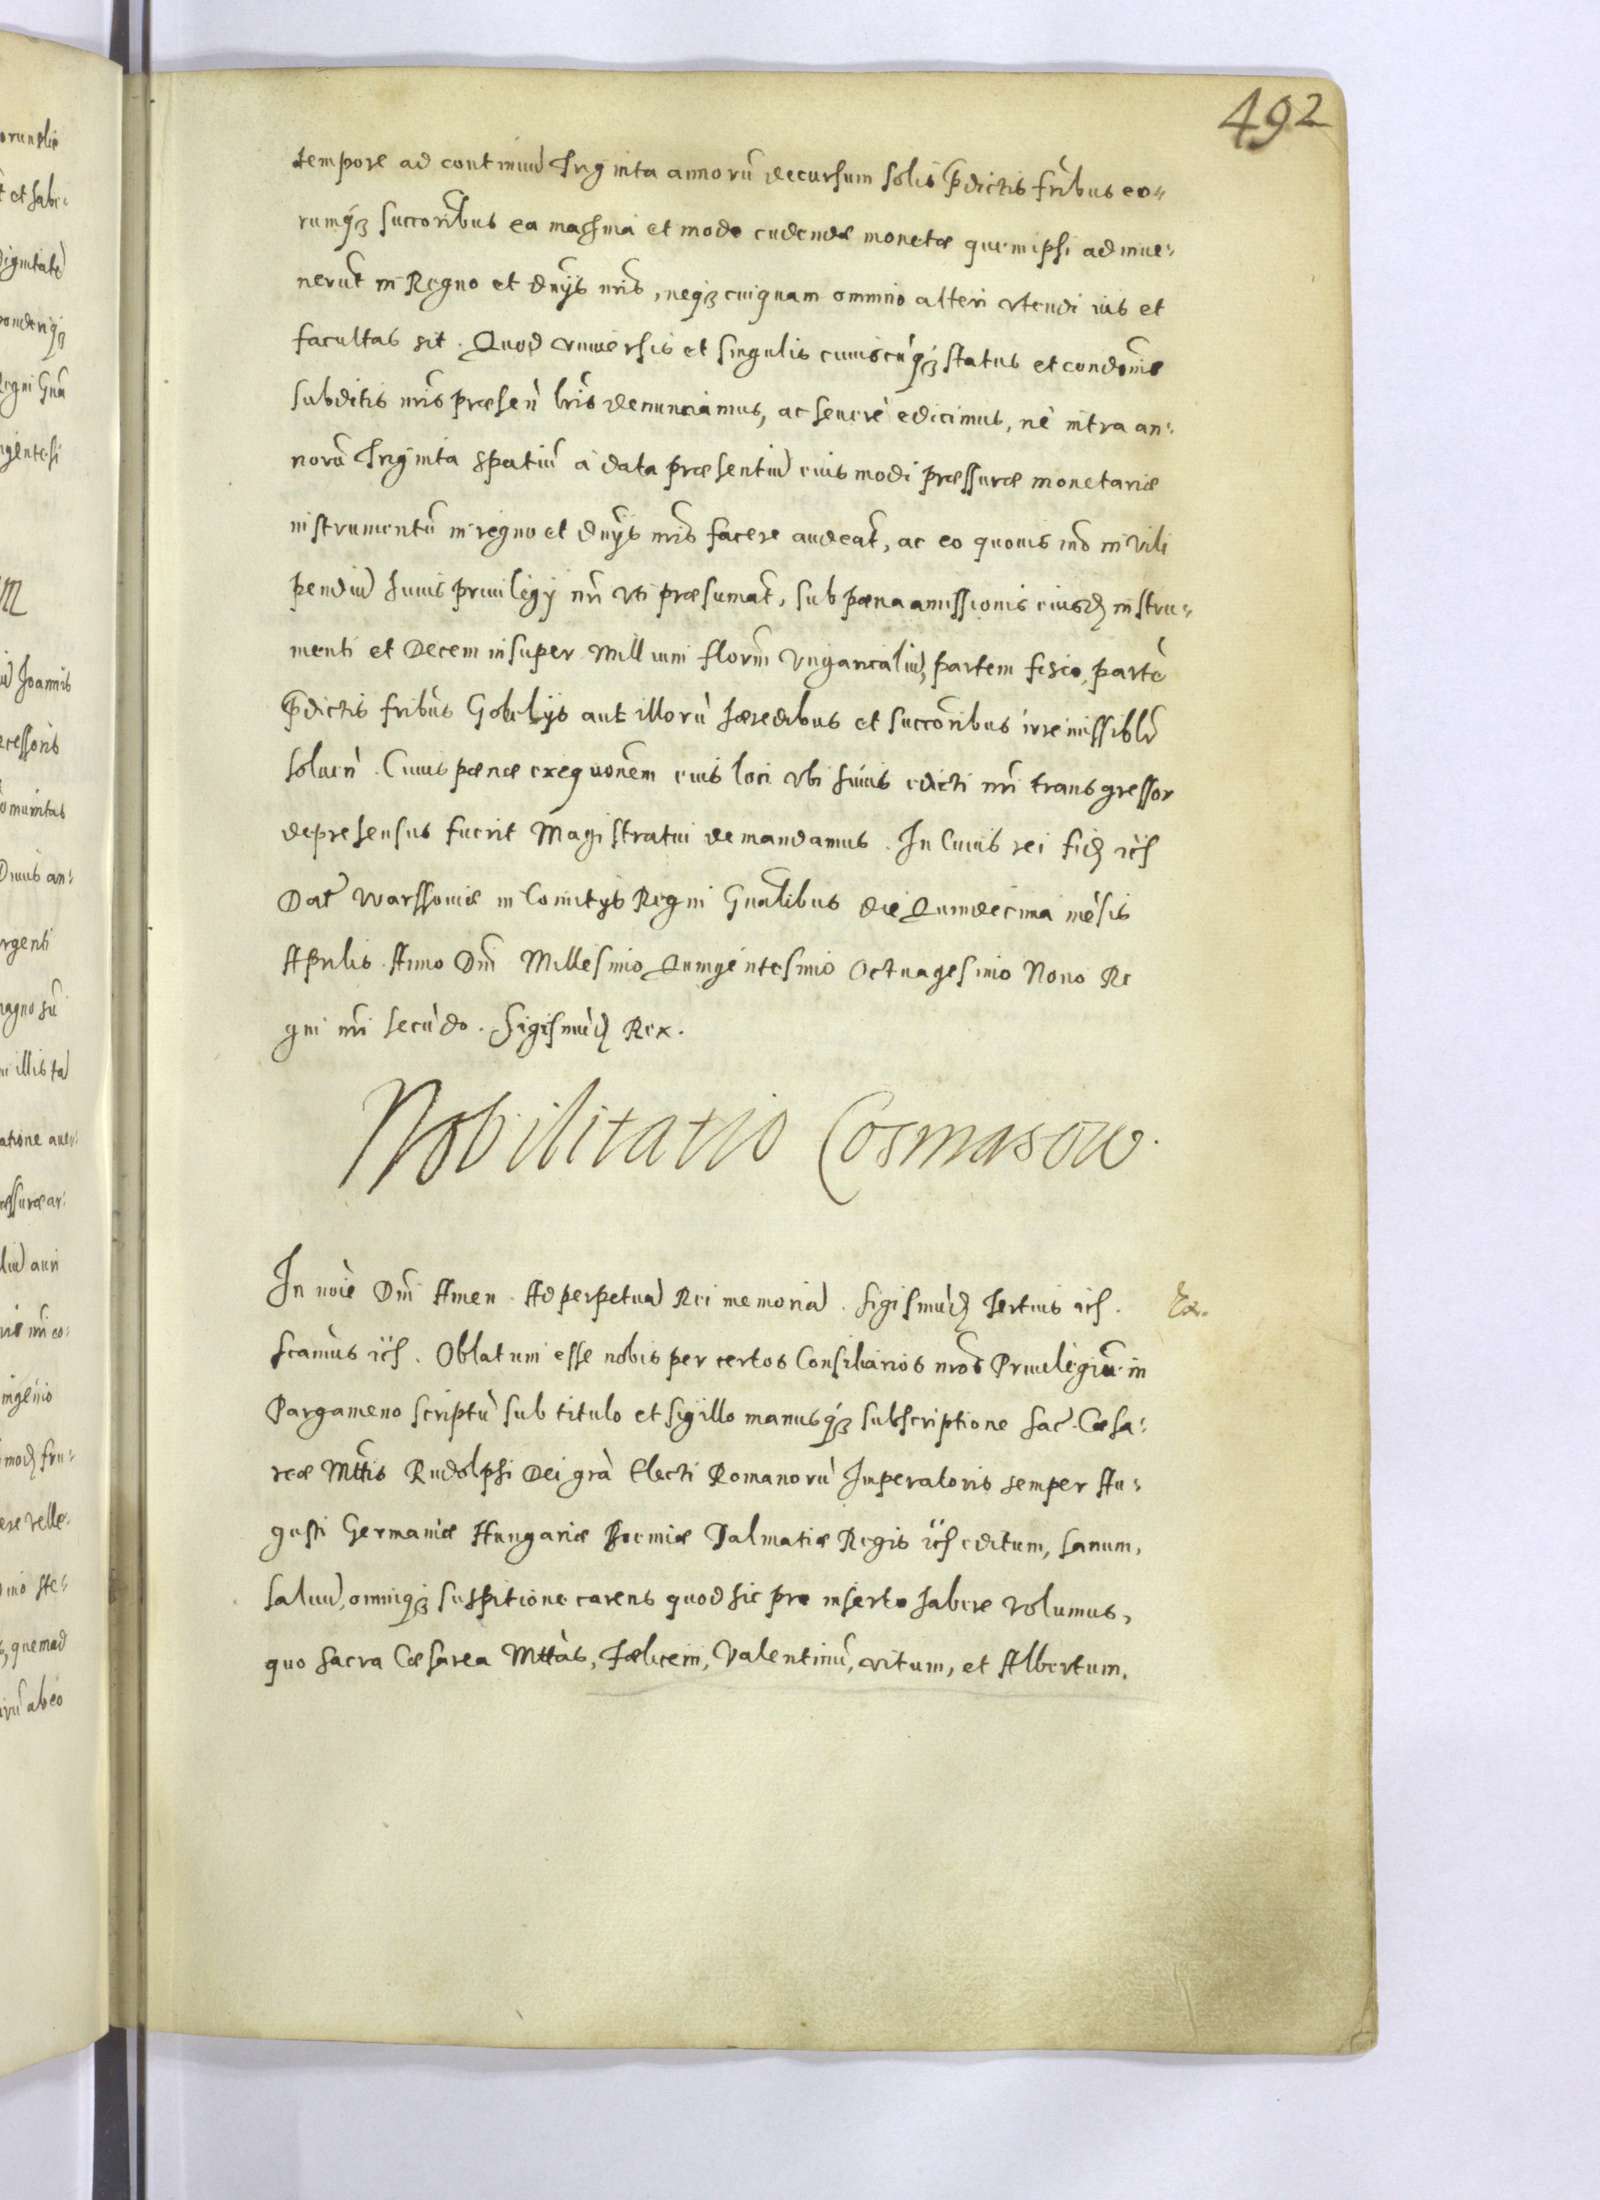 492
tempore ad continuũ Triginta annorũ decursum solis p̃dictis fr̃ibus eo-
rumq3 succoribus ea machina et modo cudendæ monetæ quem ipsi ad inue-
nerũt in Regno et Dnijs nr̃is, neq3 cuiquam omnino alteri vtendi ius et
facultas sit. Quod vniuersis et singulis cuiuscũq3 status et condonis
subditis nr̃is præsen̄ lr̃is denunciamus, ac seuerè edicimus, nè intra an-
norũ Triginta spatiũ à data præsentiũ eius modi præssuræ monetariæ
instrumentũ in regno et Dnijs nr̃is facere audeãt, ac eo quouis mõ in vili
pendiũ huius priuilegij nr̃i vti præsumãt, sub pœna amissionis eiusd̃ instru-
menti et Decem insuper Millium flor̃m Vngaricaliũ, partem fisco, partẽ
p̃dictis fribus Gobelijs aut illorũ hæredibus et succoribus irremissiblr̃
soluen̄. Cuius pœnæ exequonem eius loci vbi huius edicti nr̃i transgressor
deprehensus fuerit Magistratui demandamus. In Cuius rei fid̃ ich
Dat̃ Warssouiæ in Comitijs Regni Gnalibus die Quindecima mẽsis
Aprilis. Anno Dñi Millesimo Quingentesimo Octuagesimo Nono Re
gni nr̃i secũdo. Sigismũd̃ Rex.
Nobilitatio Cosmasow.
In noiẽ Dñi Amen. Ad perpetuã Rei memoriã. Sigismũd̃ Tertius ich.
Scamus ich. Oblatum esse nobis per certos Consiliarios nr̃os Priuilegiũ in
Pargameno scriptũ sub titulo et sigillo manusq3 subscriptione Sac̃. Cæsa-
reæ Mttis Rudolphi Dei gr̃a Electi Romanorũ Imperatoris semper Au-
gusti Germaniæ Hungariæ Boemiæ Dalmatiæ Regis ich editum, sanum,
saluũ, omniq3 suspitione carens quod hic pro inserto habere volumus,
quo Sacra Cæsarea Mttas, Fœlicem, Valentinũ, vitum, et Albertum.